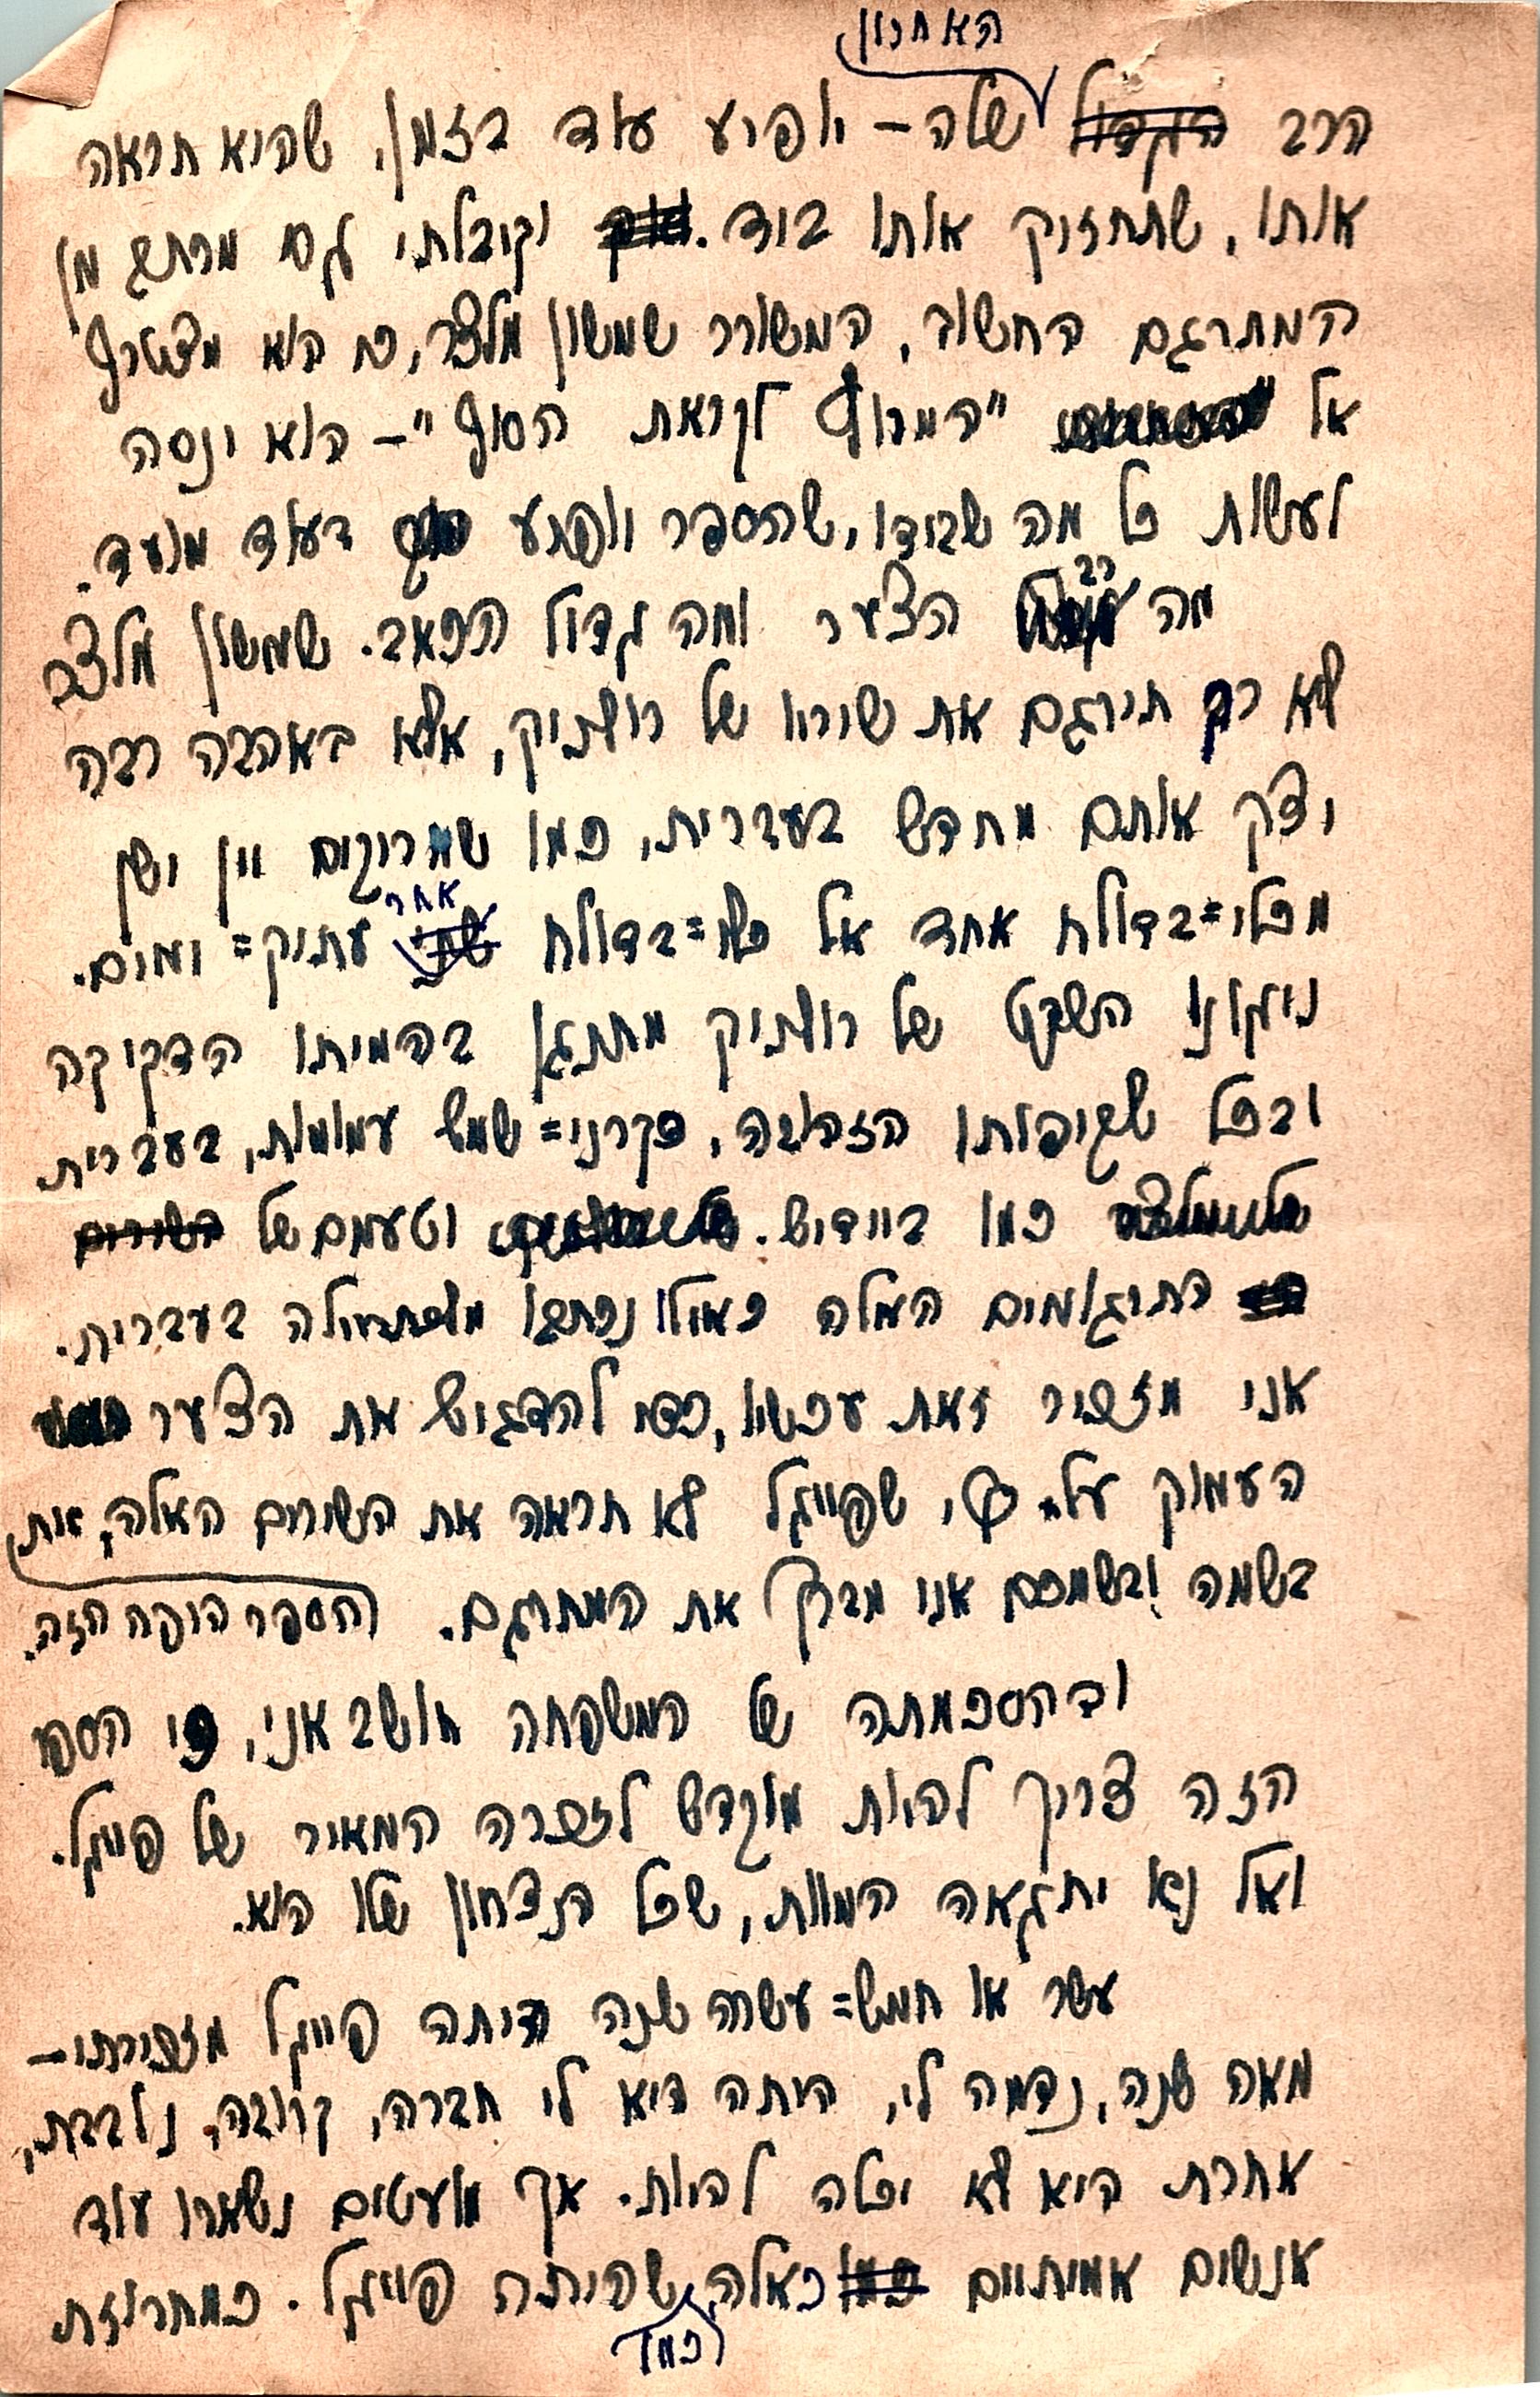 האחרון
הרב הגדול שלה – יופיע עוד בזמן, שהיא תראה
אותו, שתחזיק אותו ביד. וקיבלתי גם מכתב מן
המתרגם החשוב, המשורר שמשון מלצר, כי הוא מצטרף
אל "המרוץ לקראת הסוף" – הוא ינסה
לעשות כל מה שבידו, שהספר יופיע בעוד מועד.
מה רב הצער ומה גדול הכאב. שמשון מלצר
לא רק תירגם את שיריו של רולניק, אלא באהבה רבה
יצק אותם מחדש בעברית, כמו שמריקים יין ישן
מכלי=בדולח אחד אל כלי=בדולח שני אחר עתיק= יומים.
ניגונו השקט של רולניק מתנגן בהמיתו הדקיקה
ובכל שקיפותו הזהובה, כקרני=שמש עמומות, בעברית
כמו ביידיש. וטעמם של השירים
התירגומים האלה כאילו נכתבו מלכתחילה בעברית.
אני מזכיר זאת עכשיו, כדי להדגיש את הצער
העמוק על כך, שפייגל לא תראה את השירים האלה, את
בשמה ובשמכם אני מברך את המתרגם. (הספר היפה הזה.
ובהסכמתה של המשפחה חושב אני, כי הספר
הזה צריך להיות מוקדש לזכרה המאיר של פייגל.
ואל נא יתגאה המוות, שכל הנצחון שלו הוא.
עשר או חמש=עשרה שנה היתה פייגל מזכירתי –
מאה שנה, נדמה לי, היתה היא לי חברה, קרובה, נלבבת,
אחרת היא לא יכלה להיות. אך מועטים נשארו עוד
אנשים אמיתיים כמו כאלה, שהיתה פייגל. כמחרוזת
כמו